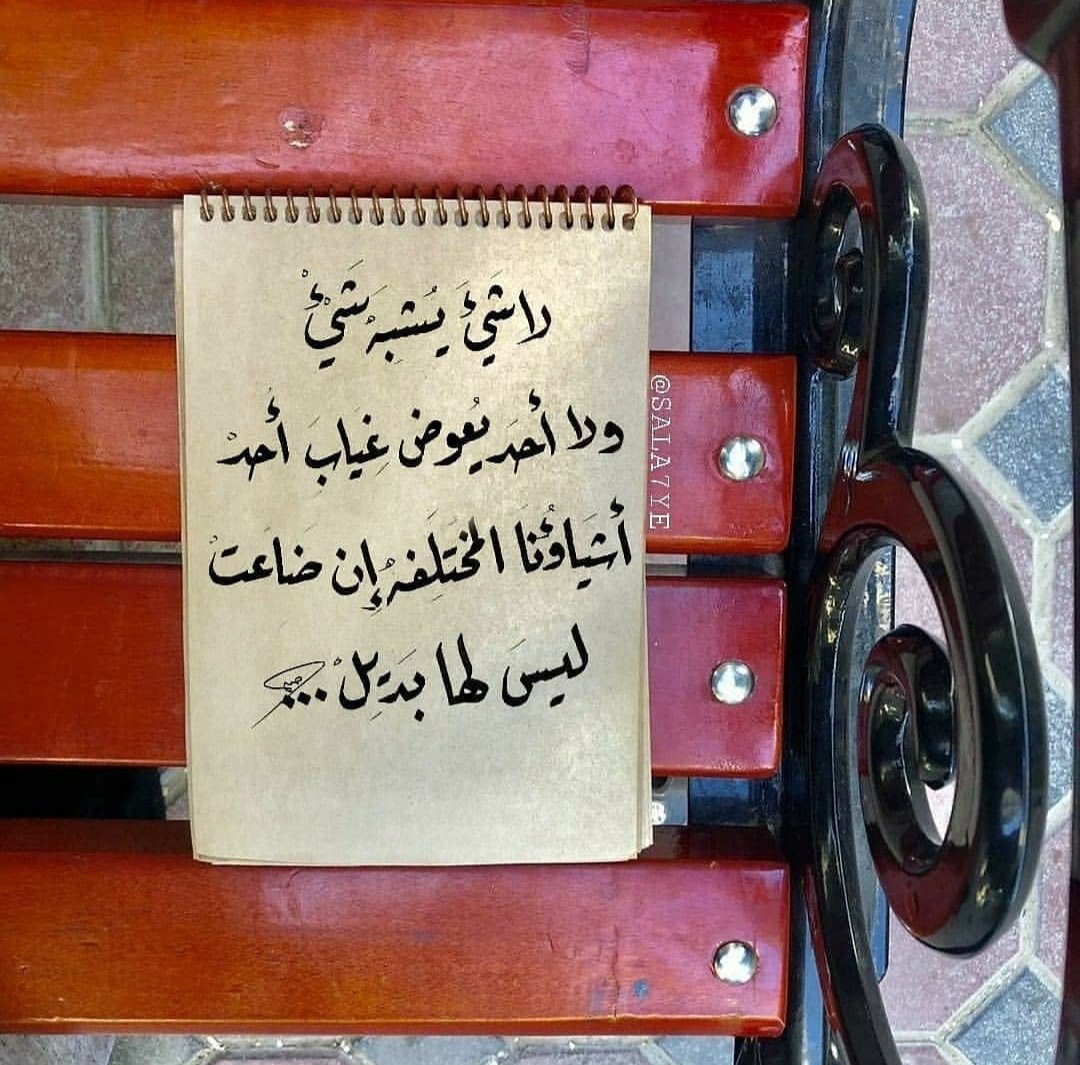 لا شَيْءَ يُشبِهُ شَيْءْ
ولا أَحَد يُعوض غِيَابَ أَحدْ
أشيَاؤُنَا المختَلِفَهُ إِن ضَاعَتْ
ليسَ لها بَدِيلْ...
@SALA7YE